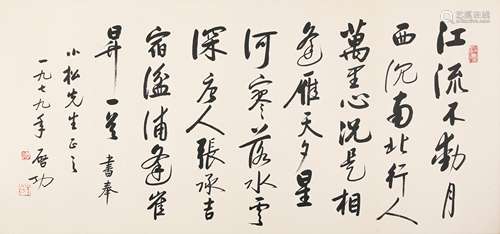 江流不動月
西沉南北行人
萬里心況是相
逢雁天夕星
河寥落水雲
深唐人張承吉
宿湓浦逢崔
昇一首 書奉
小松先生正之
一九七九年 启功